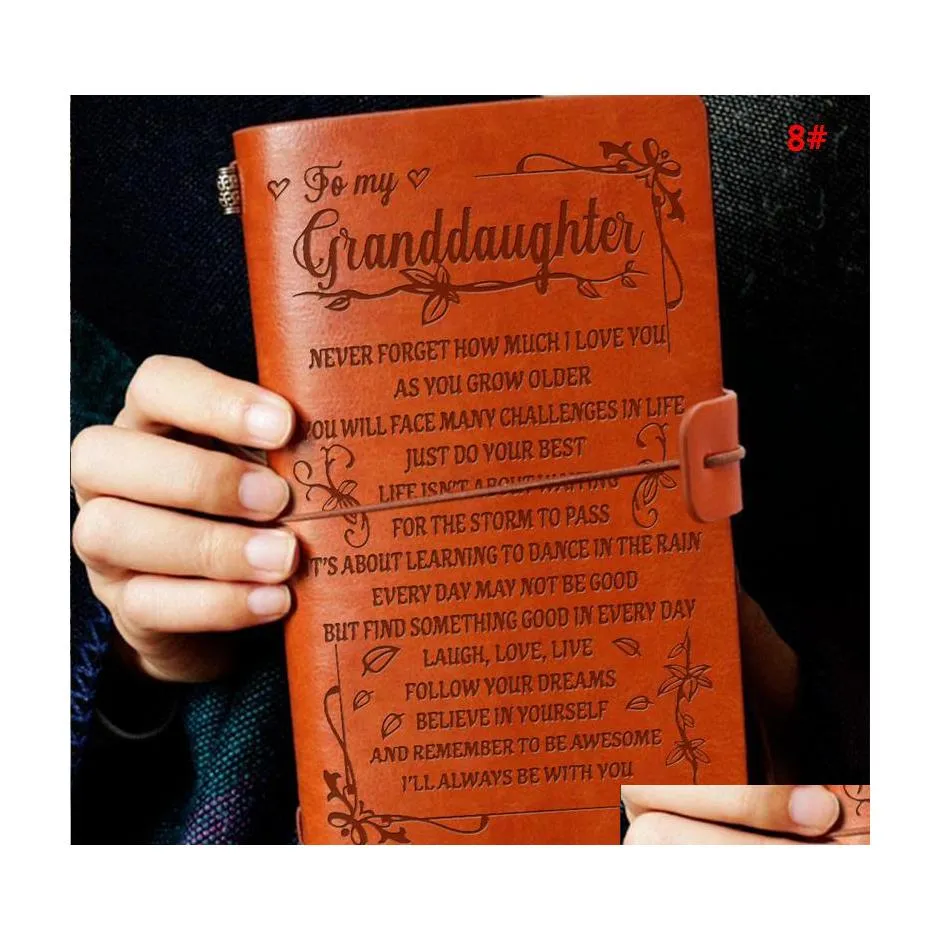 8#
To my
Granddaughter
NEVER FORGET HOW MUCH I LOVE YOU
AS YOU GROW OLDER
YOU WILL FACE MANY CHALLENGES IN LIFE
JUST DO YOUR BEST
LIFE ISN'T ABOUT WAITING
FOR THE STORM TO PASS
IT'S ABOUT LEARNING TO DANCE IN THE RAIN
EVERY DAY MAY NOT BE GOOD
BUT FIND SOMETHING GOOD IN EVERY DAY
LAUGH, LOVE, LIVE
FOLLOW YOUR DREAMS
BELIEVE IN YOURSELF
AND REMEMBER TO BE AWESOME
I'LL ALWAYS BE WITH YOU